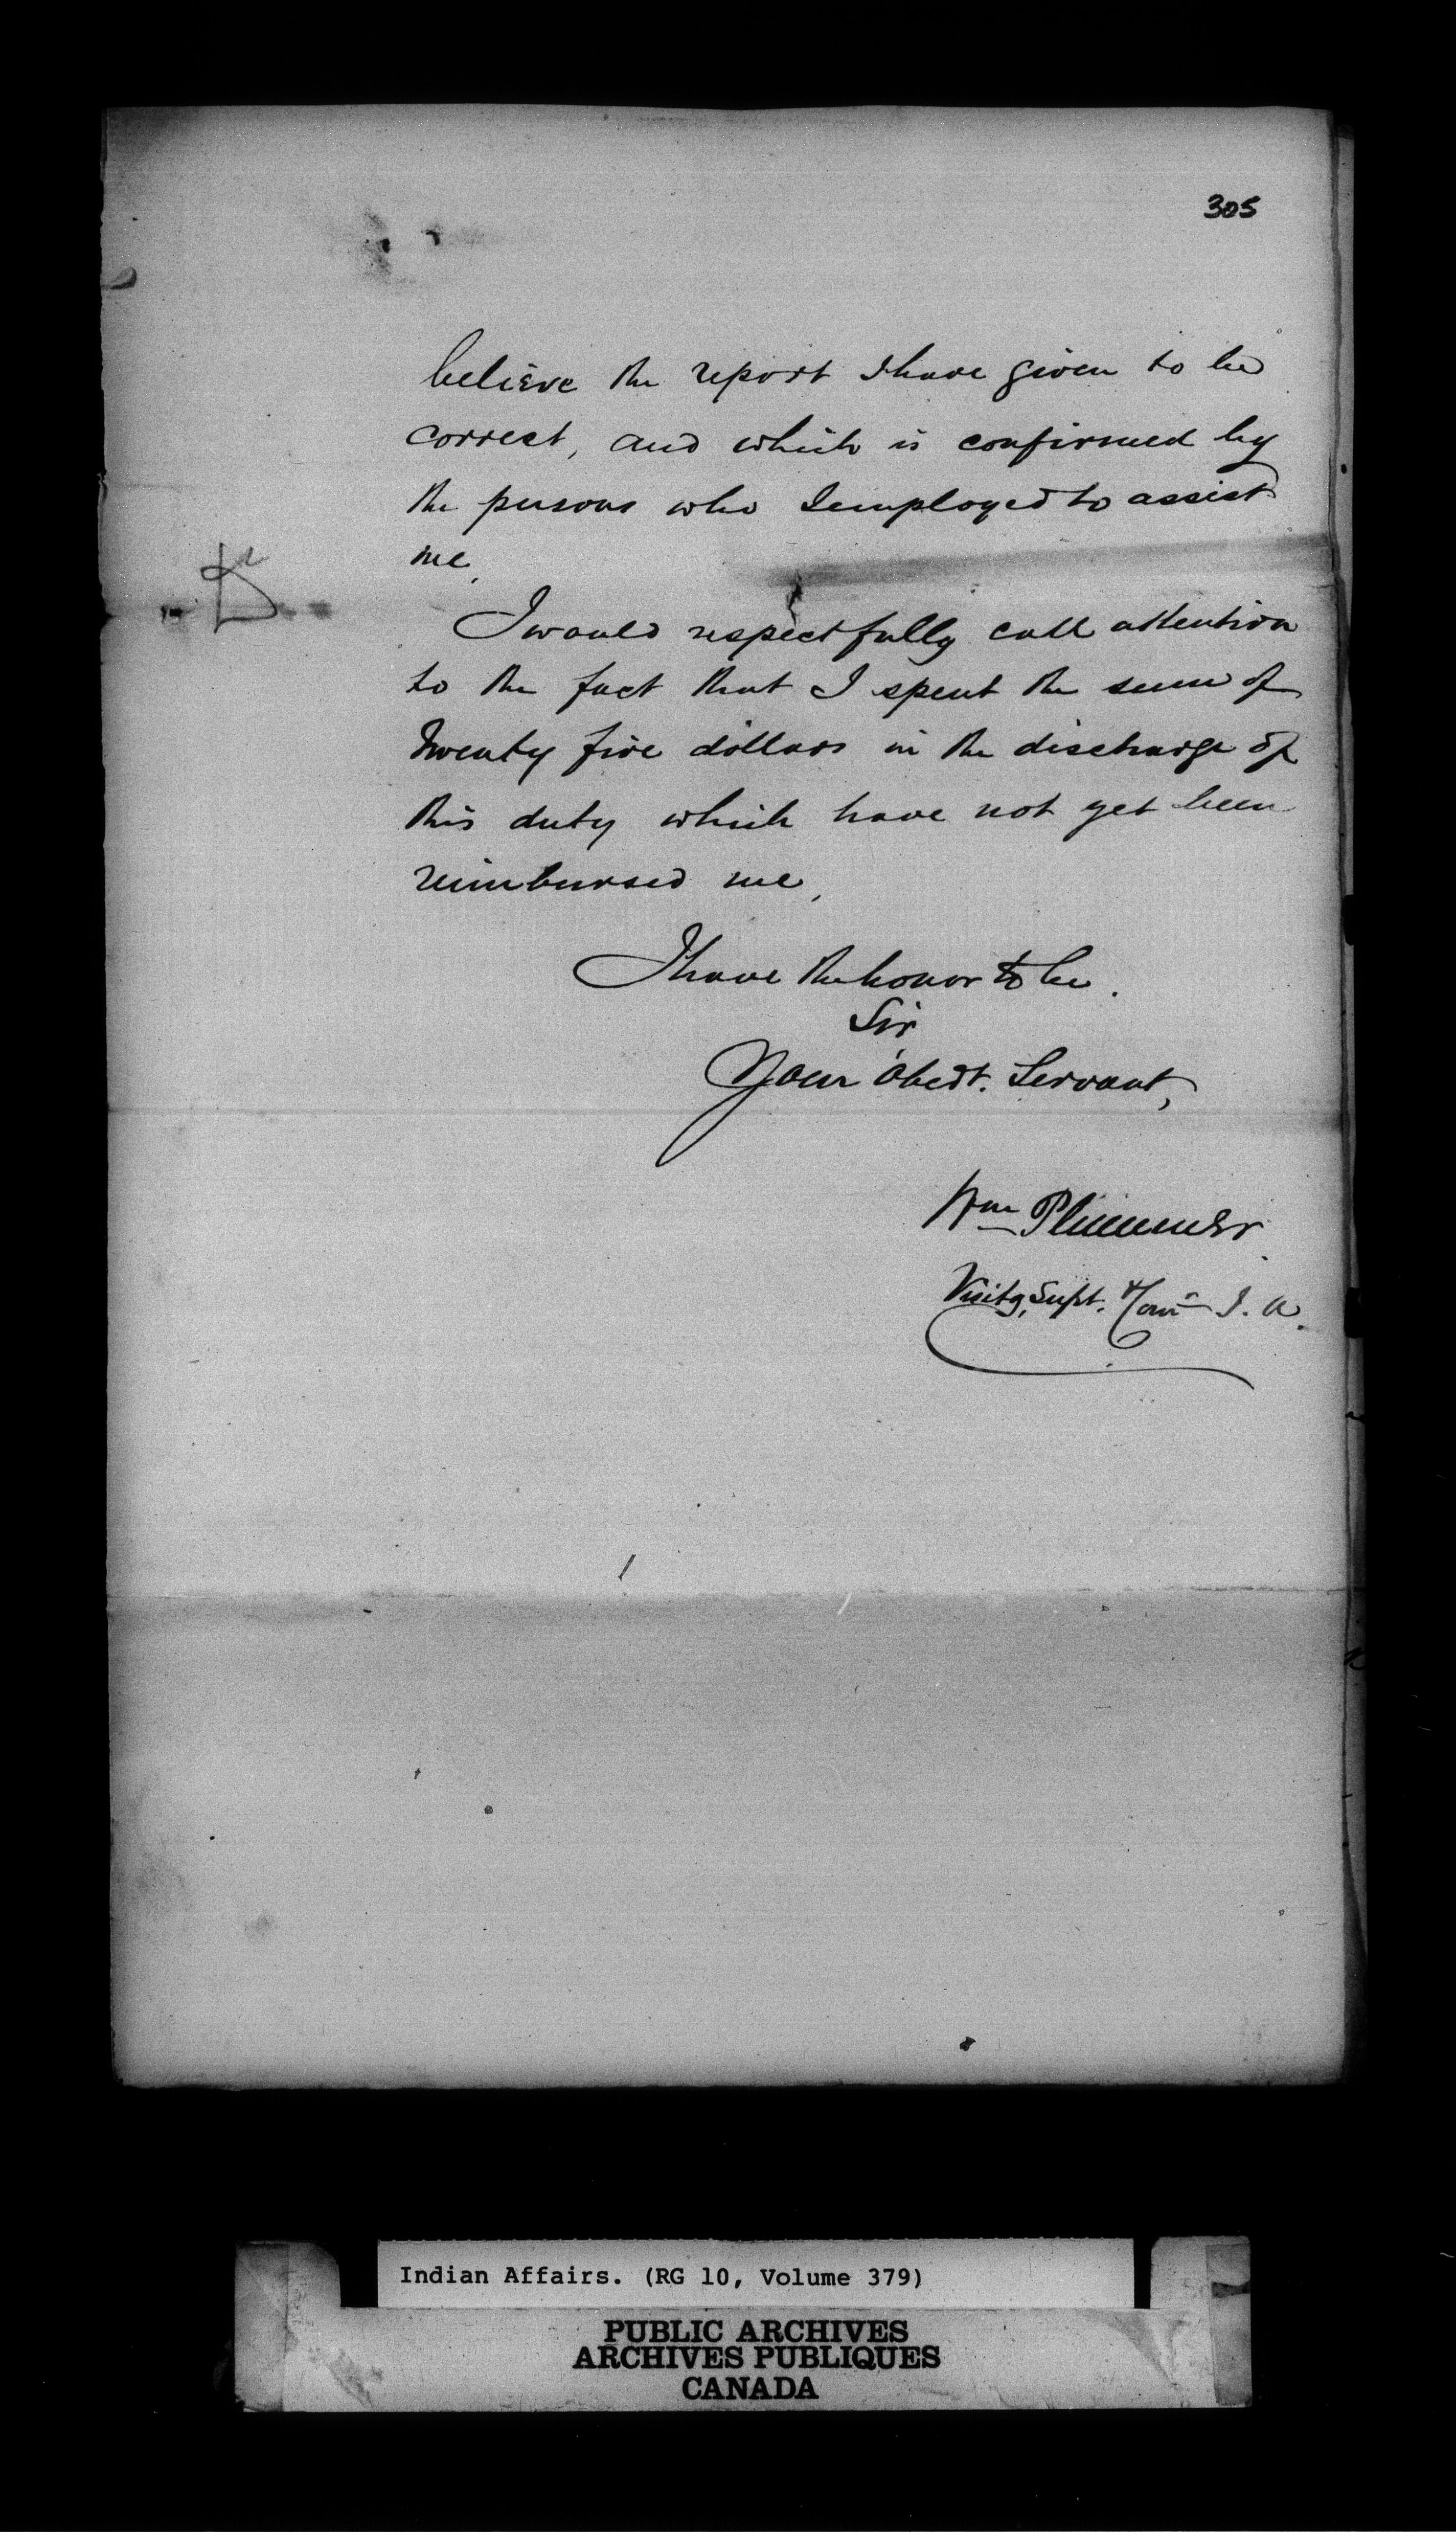 305
believe the report I have given to be
correct, and which is confirmed by
the persons who I employed to assist
me,
I would respectfully call attention
to the fact that I spent the sum of
Twenty five dollars in the discharge of
this duty which have not yet been
reimbursed me,
I have the honor to be.
Sir
Your Obedt. Servant,
Wm Plummer
Visitg, Supt. & Comr I. A.
Indian Affairs. (RG 10, Volume 379)
PUBLIC ARCHIVES
ARCHIVES PUBLIQUES
CANADA